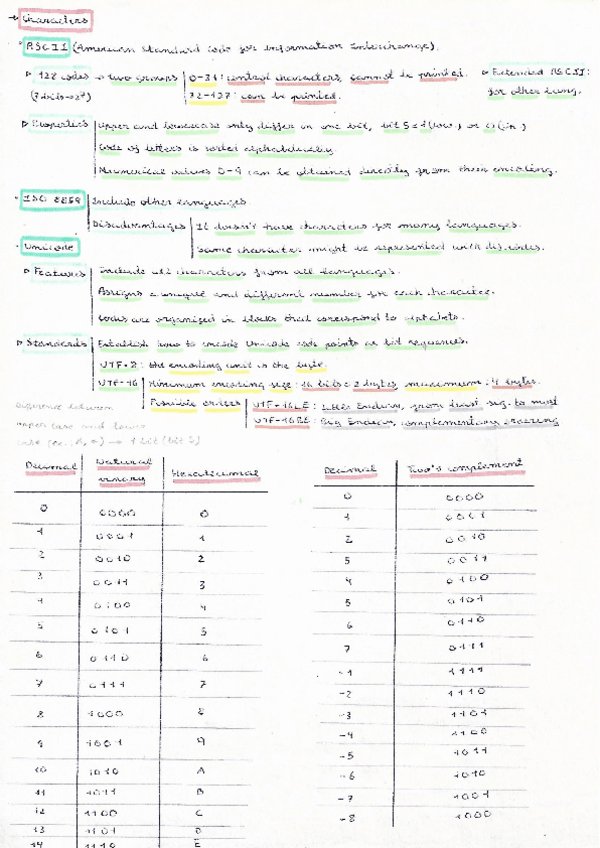 Characters
ASCII (American Standard Code for Information Interchange).
128 codes → two groups | 0-31: control characters, cannot be printed. ▷ Extended ASCII:
(7 bits→2⁷) | 32-127: can be printed. for other lang.
▷ Properties | Upper and lowercase only differ in one bit, bit 5=1 (low.) or 0
Code of letters is sorted alphabetically
Numerical values 0-9 can be obtained directly from their encoding.
ISO 8859 | Include other languages
Disadvantages | It doesn't have characters for many languages.
Same character might be represented with dif. codes.
Unicode
▷ Features | Include all characters from all languages.
Assigns a unique and different number for each character.
Codes are organized in blocks that correspond to alphabets.
▷ Standards | Establish how to encode Unicode code points as bit sequences.
UTF-8: the encoding unit is the byte.
UTF-16 | Minimum encoding size: 16 bits = 2 bytes, maximum: 4 bytes.
Possible orders | UTF-16LE: Little Endian, from least sig. to most
UTF-16BE: Big Endian, complementary
Difference between
upper case and lower
case → 1 bit (bit 5)
Decimal | Natural binary | Hexadecimal
0 | 0000 | 0
1 | 0001 | 1
2 | 0010 | 2
3 | 0011 | 3
4 | 0100 | 4
5 | 0101 | 5
6 | 0110 | 6
7 | 0111 | 7
8 | 1000 | 8
9 | 1001 | 9
10 | 1010 | A
11 | 1011 | B
12 | 1100 | C
13 | 1101 | D
14 | 1110 | E
Decimal | Two's complement
0 | 0000
1 | 0001
2 | 0010
3 | 0011
4 | 0100
5 | 0101
6 | 0110
7 | 0111
-1 | 1111
-2 | 1110
-3 | 1101
-4 | 1100
-5 | 1011
-6 | 1010
-7 | 1001
-8 | 1000